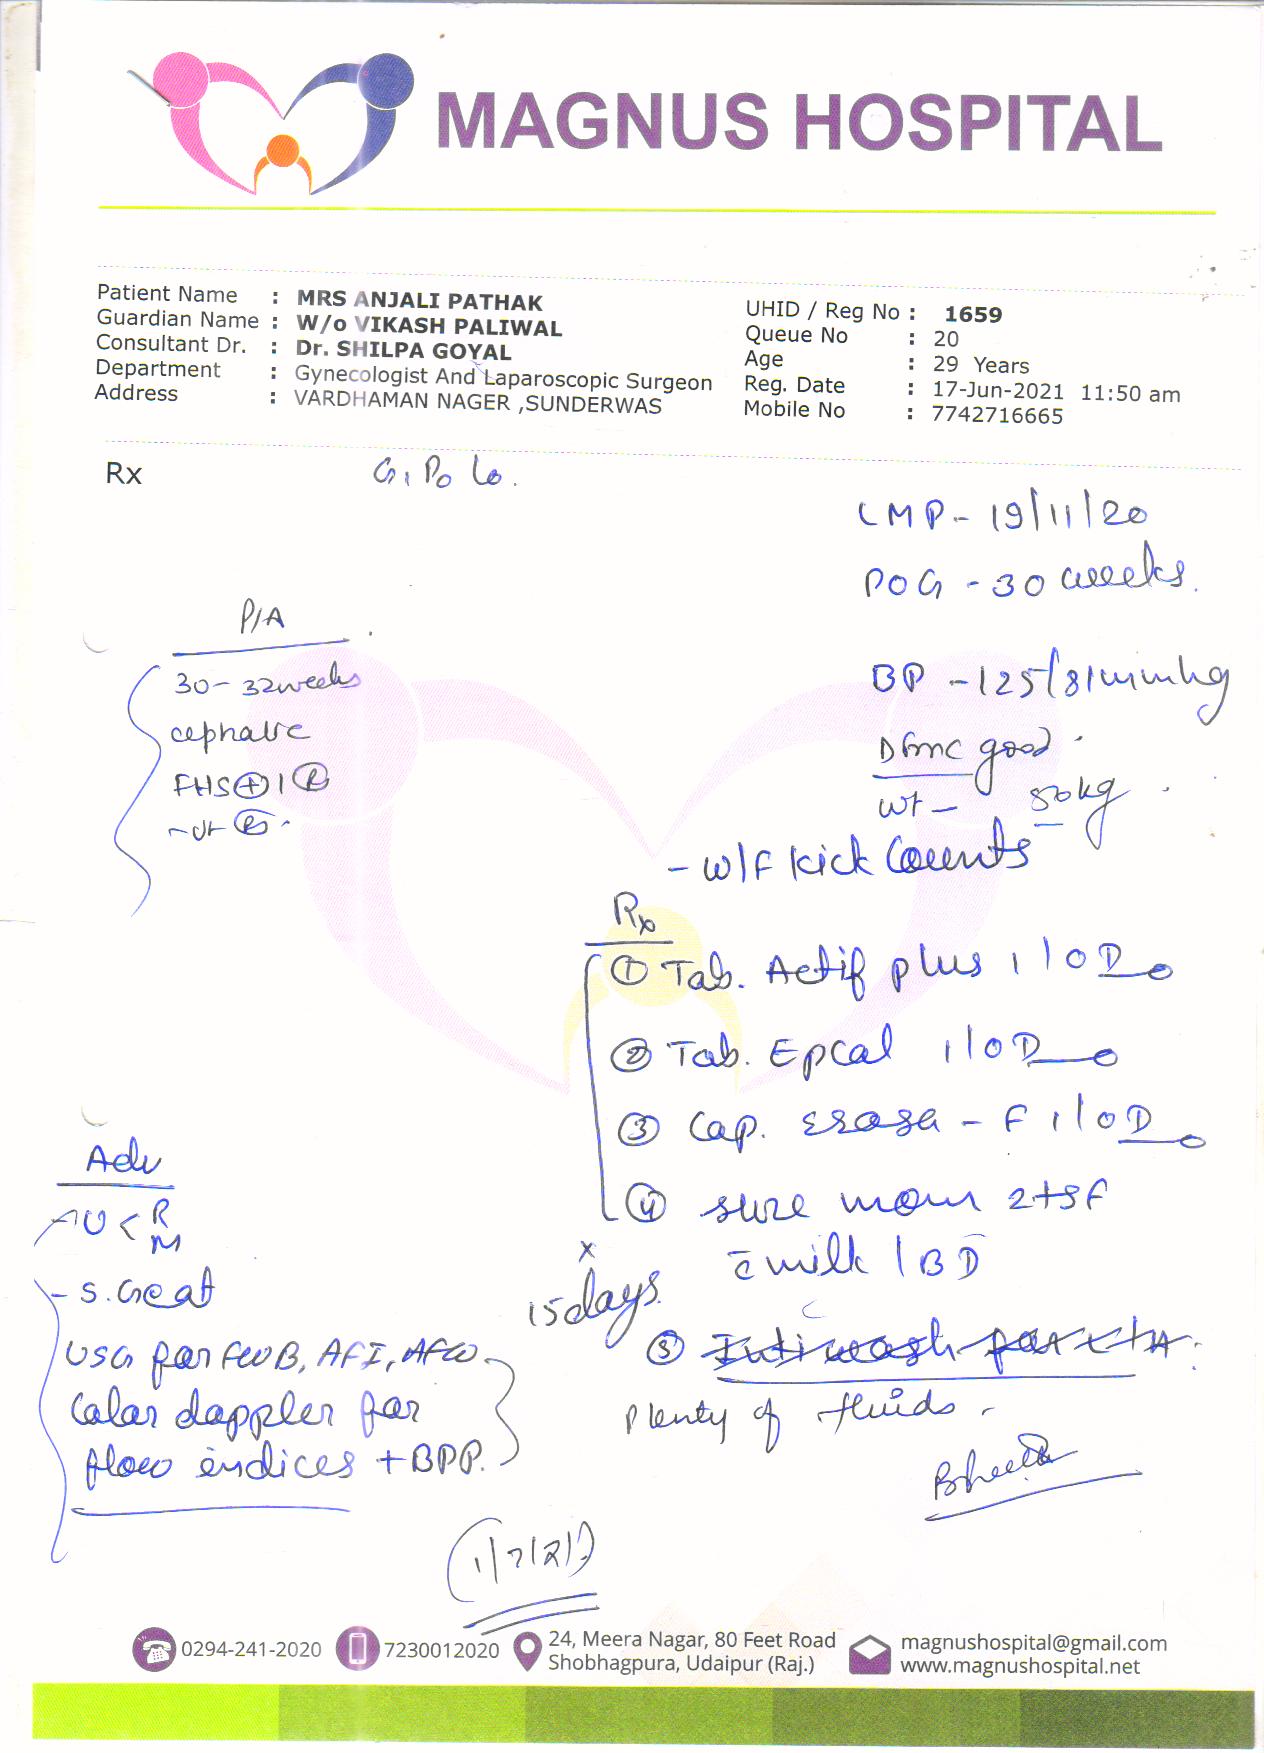 MAGNUS HOSPITAL
Patient Name : MRS ANJALI PATHAK
Guardian Name : W/o VIKASH PALIWAL
Consultant Dr. : Dr. SHILPA GOYAL
Department : Gynecologist And Laparoscopic Surgeon
Address : VARDHAMAN NAGER ,SUNDERWAS
UHID / Reg No : 1659
Queue No : 20
Age : 29 Years
Reg. Date : 17-Jun-2021 11:50 am
Mobile No : 7742716665
Rx
G1 P0 L0.
LMP - 19/11/20
POG - 30 weeks.
P/A
30-32weeks
cephalic
FHS⊕ | Ⓡ
BP - 125/81mmhg
Dfmc good.
wt - 50kg
- W/F kick Counts
Rx
① Tab. Actif plus 1 | OD
② Tab. Epcal 1 | OD
③ Cap. - F 1 | OD
④ sure mom 2tsf
c̄ milk | BD
x 15days.
⑤
Plenty of fluids.
Adv
U < R M
- S. Creat
USG for FWB, AFI, AFW
Color doppler for
flow indices + BPP.
(1/7/21)
0294-241-2020
7230012020
24, Meera Nagar, 80 Feet Road
Shobhagpura, Udaipur (Raj.)
magnushospital@gmail.com
www.magnushospital.net